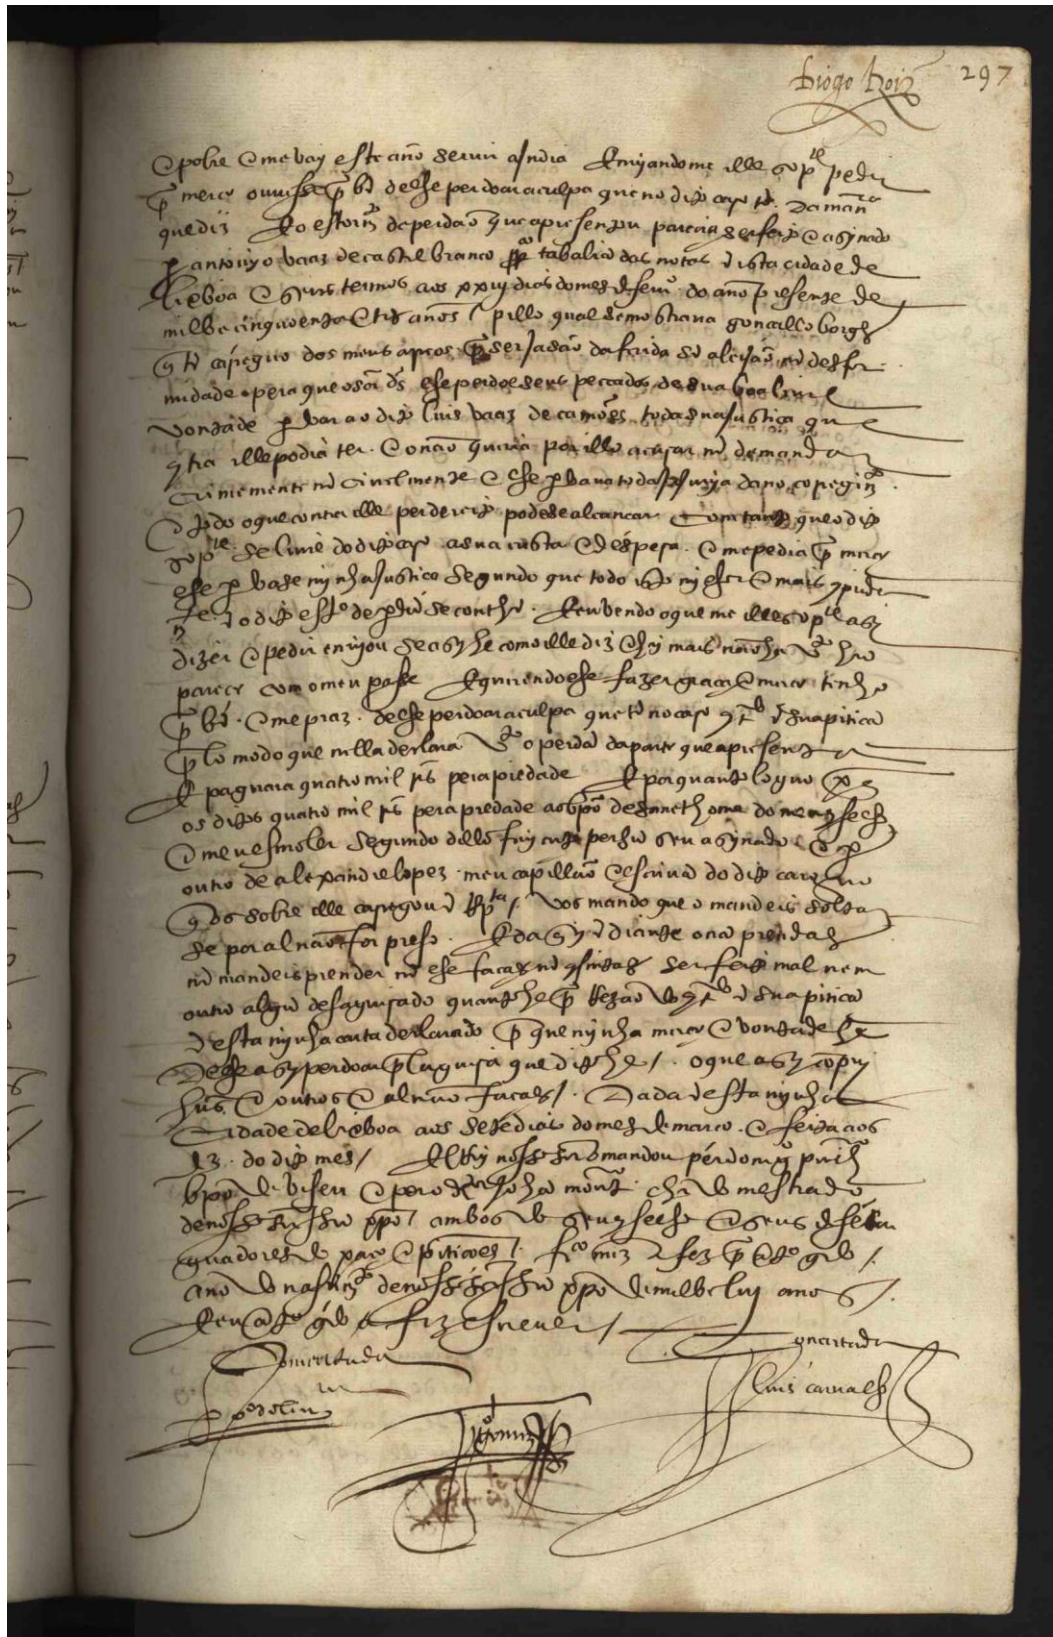 Diogo Roiz 297
e pobre e me vay este año servir a Indía Emvyandome elle sop.te pedir
por merce ouuese por bẽ de lhe perdoar a culpa que no dito caso tẽ. da manra
que diz E o estorm.to de perdaõ que apresentou parecia ser feito e asynado
por antonyo vaaz de castelbranco pp.co tabaliaõ das notas desta cidade de
lixboa e seus termos aos xxiij dias do mes de fev.ro do año presente de
mil be cinquoenta e tres años / pello qual se mostrava goncallo borges
q tẽ carreguo dos meus areos q por ser jasão da ferida sẽ aleijaõ nẽ desfor
midade e pera que osõr ds lhe perdoe seus peccados de sua boa e livre
vontade perdoar ao dito luis vaaz de camões toda sua Justica que
contra elle podia ter. e o não queria por ello acusar nẽ demandar
crimemente nẽ civelmente e lhe perdoava toda Injurya dano corregim.to
e todo o que contra elle per dereito podese alcancar Com tanto que o dito
sop.te se livre do dito caso a sua custa e despesa. e me pedia por merce
lhe perdoase minha Justica segundo que todo isto milhor e mais compridam
te no dito est.o de perdaõ se conthem. E eu vendo o que me elle sop.te asy
dizer e pedir enviou se asy he como elle diz e hy mais não ha v.to hũ
parece com o meu pase E querendolhe fazer graca e merce tenho
por bẽ. e me praz. de lhe perdoar a culpa que tẽ no caso contheudo em sua piticã
pelo modo que nella declara v.to o perdã da parte que apresenta
E paguara quatro mil rs̃ pera piedade E por quanto loguo paguou
os ditos quatro mil rs̃ pera piedade ao bpõ de san thome do meu conselho
e meu esmoler segundo dello fuy certo per hũ seu asynado e per
outro de alexandre lopez meu capellaõ e escrivã do dito carguo
q os sobre elle caregou ẽ rec.ta / vos mando que o mandeis soltar
se por al não for preso. E da quy ẽ diante o nã prendais
nẽ mandeis prender nẽ lhe facais nẽ consintais ser feito mal nem
outro algũ desaguisado quanto he por rezaõ do contheudo ẽ sua piticã
desta mynha carta declarado por que mynha merce e vontade he
de lhe asy perdoar pela guisa que dito he /. o que asy compry
hũs e outros e al não facais /. Dada desta mynha
cidade de lixboa aos sete dias do mes de marco. e feita aos
13. do dito mes / El Rey nosso sõr o mandou per dom g.lo pinh.ro
bpõ de viseu e per o d.tor Joham mont.ro chr̃ do mestrado
de nosso sõr Jhũ xpõ / ambos do seu conselho e seus desem
guadores do paço e piticoes /. fr.co miz a fez por ant.o g.do /.
año do nascim.to de nosso sõr Jhũ xpõ de mil be liij anos /.
E eu ant.o g.do a fiz escrever /
Comcertada Concertada
p.o doliu.ra Luis carualho